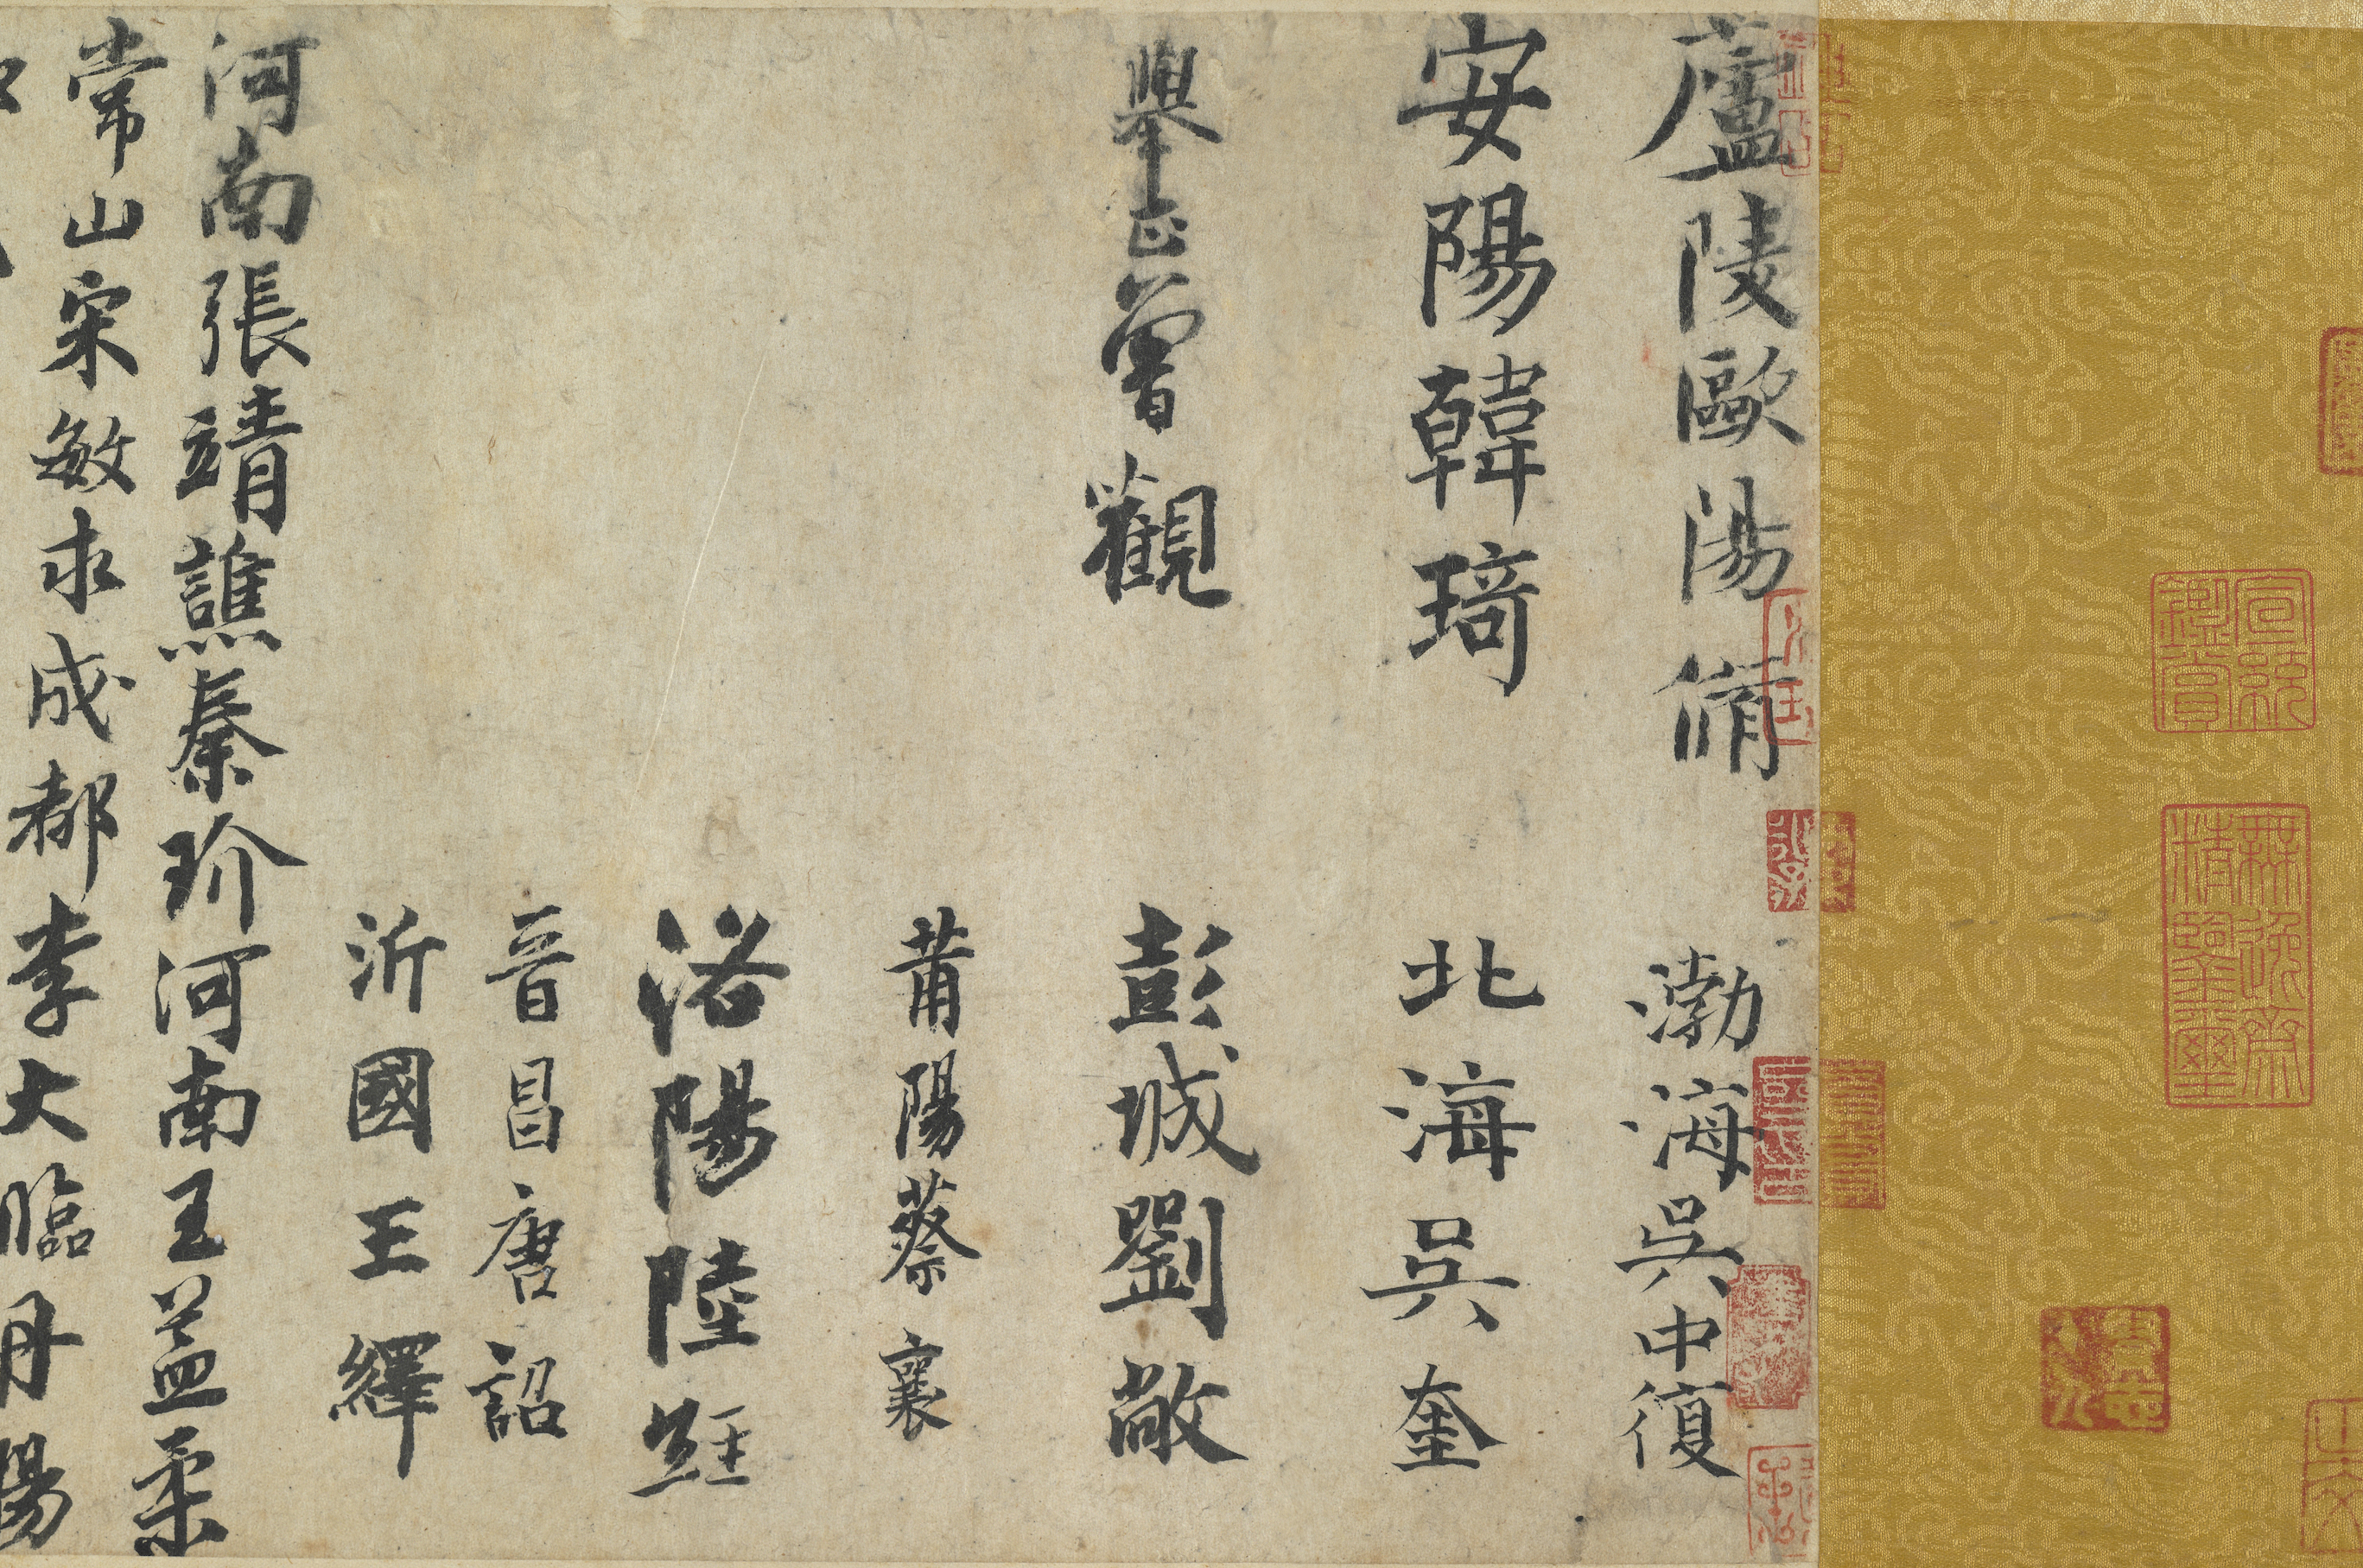 宣統鑑賞
無逸齋精鑒璽
廬陵歐陽脩
渤海吳中復
安陽韓琦
北海吳奎
舉正曾觀
彭城劉敞
莆陽蔡襄
洛陽陸經
晉昌唐詔
沂國王繹
河南張靖譙秦玠河南王益柔
常山宋敏求成都李大臨丹陽